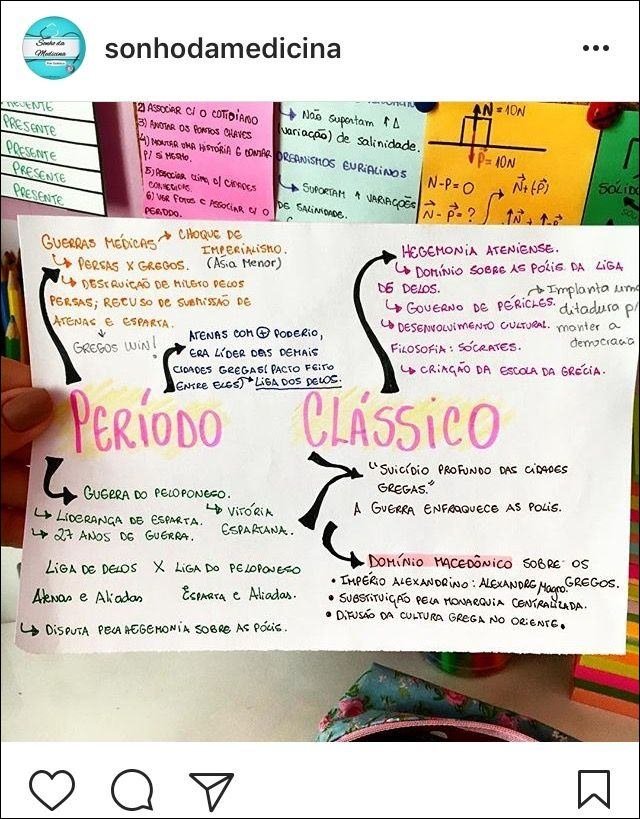 Sonho da
Medicina
sonhodamedicina
PRESENTE
PRESENTE
PRESENTE
PRESENTE
2) ASSOCIAR C/ O COTIDIANO
3) ANOTAR OS PONTOS CHAVES
4) MONTAR UMA HISTÓRIA E CONTAR
P/ SI MESMO.
5) ASSOCIAR CLIMA C/ CIDADES
CONHECIDAS.
6) VER FOTOS E ASSOCIAR C/ O
PERÍODO.
↳ Não suportam ↑ Δ
(variação) de salinidade.
ORGANISMOS EURIALINOS
↳ SUPORTAM ↑ VARIAÇÕES
DE SALINIDADE.
N = 10N
P = 10N
N-P=0
N+(-P)
N - P = ?
GUERRAS MÉDICAS → CHOQUE DE
IMPERIALISMO.
↳ PERSAS X GREGOS. (Asia Menor)
↳ DESTRUIÇÃO DE MILETO PELOS
PERSAS; RECUSO DE SUBMISSÃO DE
ATENAS E ESPARTA.
↓
GREGOS WIN!
ATENAS COM ⊕ PODERIO,
ERA LÍDER DAS DEMAIS
CIDADES GREGAS( PACTO FEITO
ENTRE ELES) → LIGA DOS DELOS.
HEGEMONIA ATENIENSE.
↳ DOMÍNIO SOBRE AS PÓLIS DA LIGA
DE DELOS.
↳ GOVERNO DE PÉRICLES. → Implanta uma
ditadura p/
manter a
democracia
↳ DESENVOLVIMENTO CULTURAL.
FILOSOFIA: SÓCRATES.
↳ CRIAÇÃO DA ESCOLA DA GRÉCIA.
PERÍODO CLÁSSICO
↳ GUERRA DO PELOPONESO.
↳ LIDERANÇA DE ESPARTA. ↳ VITÓRIA
ESPARTANA.
↳ 27 ANOS DE GUERRA.
LIGA DE DELOS X LIGA DO PELOPONESO
Atenas e Aliadas Esparta e Aliadas.
↳ DISPUTA PELA HEGEMONIA SOBRE AS PÓLIS.
"SUICÍDIO PROFUNDO DAS CIDADES
GREGAS."
A GUERRA ENFRAQUECE AS POLIS.
DOMÍNIO MACEDÔNICO SOBRE OS
GREGOS.
• IMPÉRIO ALEXANDRINO: ALEXANDRE Magno.
• SUBSTITUIÇÃO PELA MONARQUIA CENTRALIZADA.
• DIFUSÃO DA CULTURA GREGA NO ORIENTE.